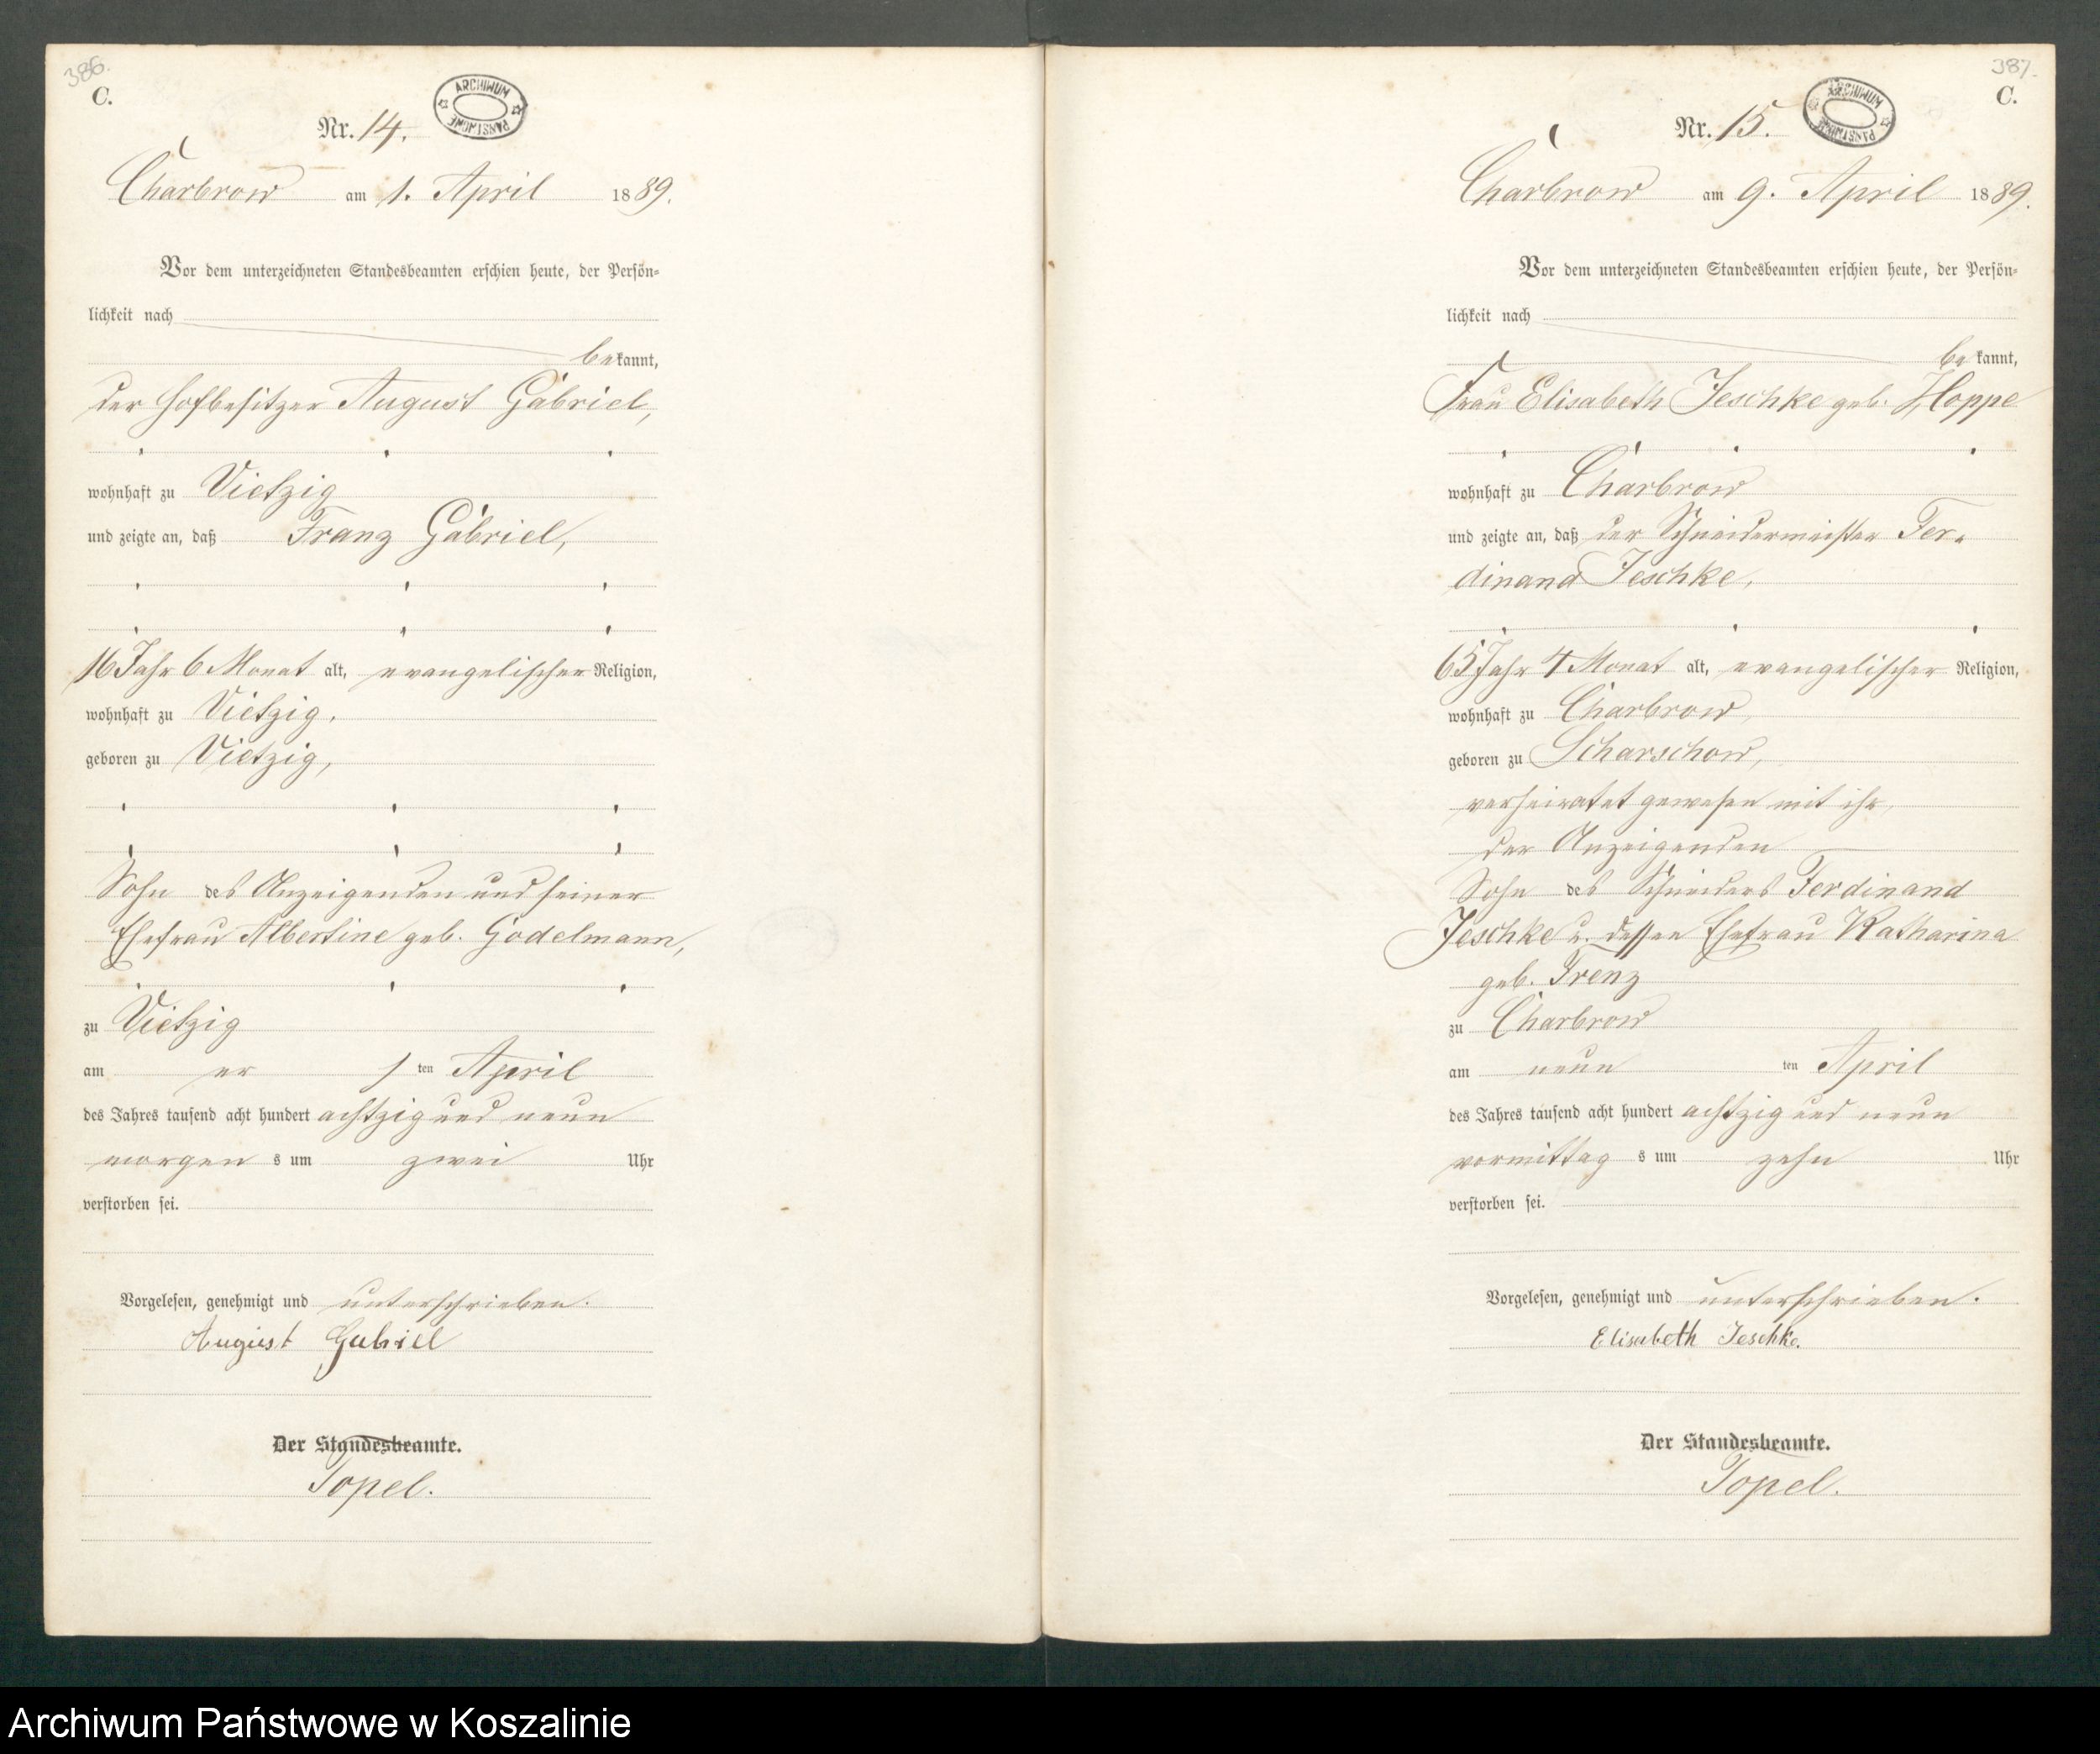 386.
C.
ARCHIWUM PAŃSTWOWE
Nr. 14.
Charbrow am 1. April 1889.
Vor dem unterzeichneten Standesbeamten erschien heute, der Persön-
lichkeit nach
bekannt,
der Hofbesitzer August Gabriel,
wohnhaft zu Vietzig
und zeigte an, daß Franz Gabriel,
16 Jahr 6 Monat alt, evangelischer Religion,
wohnhaft zu Vietzig,
geboren zu Vietzig,
Sohn des Anzeigenden und seiner
Ehefrau Albertine geb. Godelmann,
zu Vietzig
am er 1 ten April
des Jahres tausend acht hundert achtzig und neun
morgens um zwei Uhr
verstorben sei.
Vorgelesen, genehmigt und unterschrieben.
August Gabriel
Der Standesbeamte.
Topel.
387.
C.
ARCHIWUM PAŃSTWOWE
Nr. 15.
Charbrow am 9. April 1889.
Vor dem unterzeichneten Standesbeamten erschien heute, der Persön-
lichkeit nach
bekannt,
Frau Elisabeth Jeschke geb. Hoppe
wohnhaft zu Charbrow
und zeigte an, daß der Schneidermeister Fer-
dinand Jeschke,
65 Jahr 4 Monat alt, evangelischer Religion,
wohnhaft zu Charbrow,
geboren zu Scharschow,
verheiratet gewesen mit ihr,
der Anzeigenden
Sohn des Schneiders Ferdinand
Jeschke u. dessen Ehefrau Katharina
geb. Trenz
zu Charbrow
am neun ten April
des Jahres tausend acht hundert achtzig und neun
vormittags um zehn Uhr
verstorben sei.
Vorgelesen, genehmigt und unterschrieben.
Elisabeth Jeschke.
Der Standesbeamte.
Topel.
Archiwum Państwowe w Koszalinie